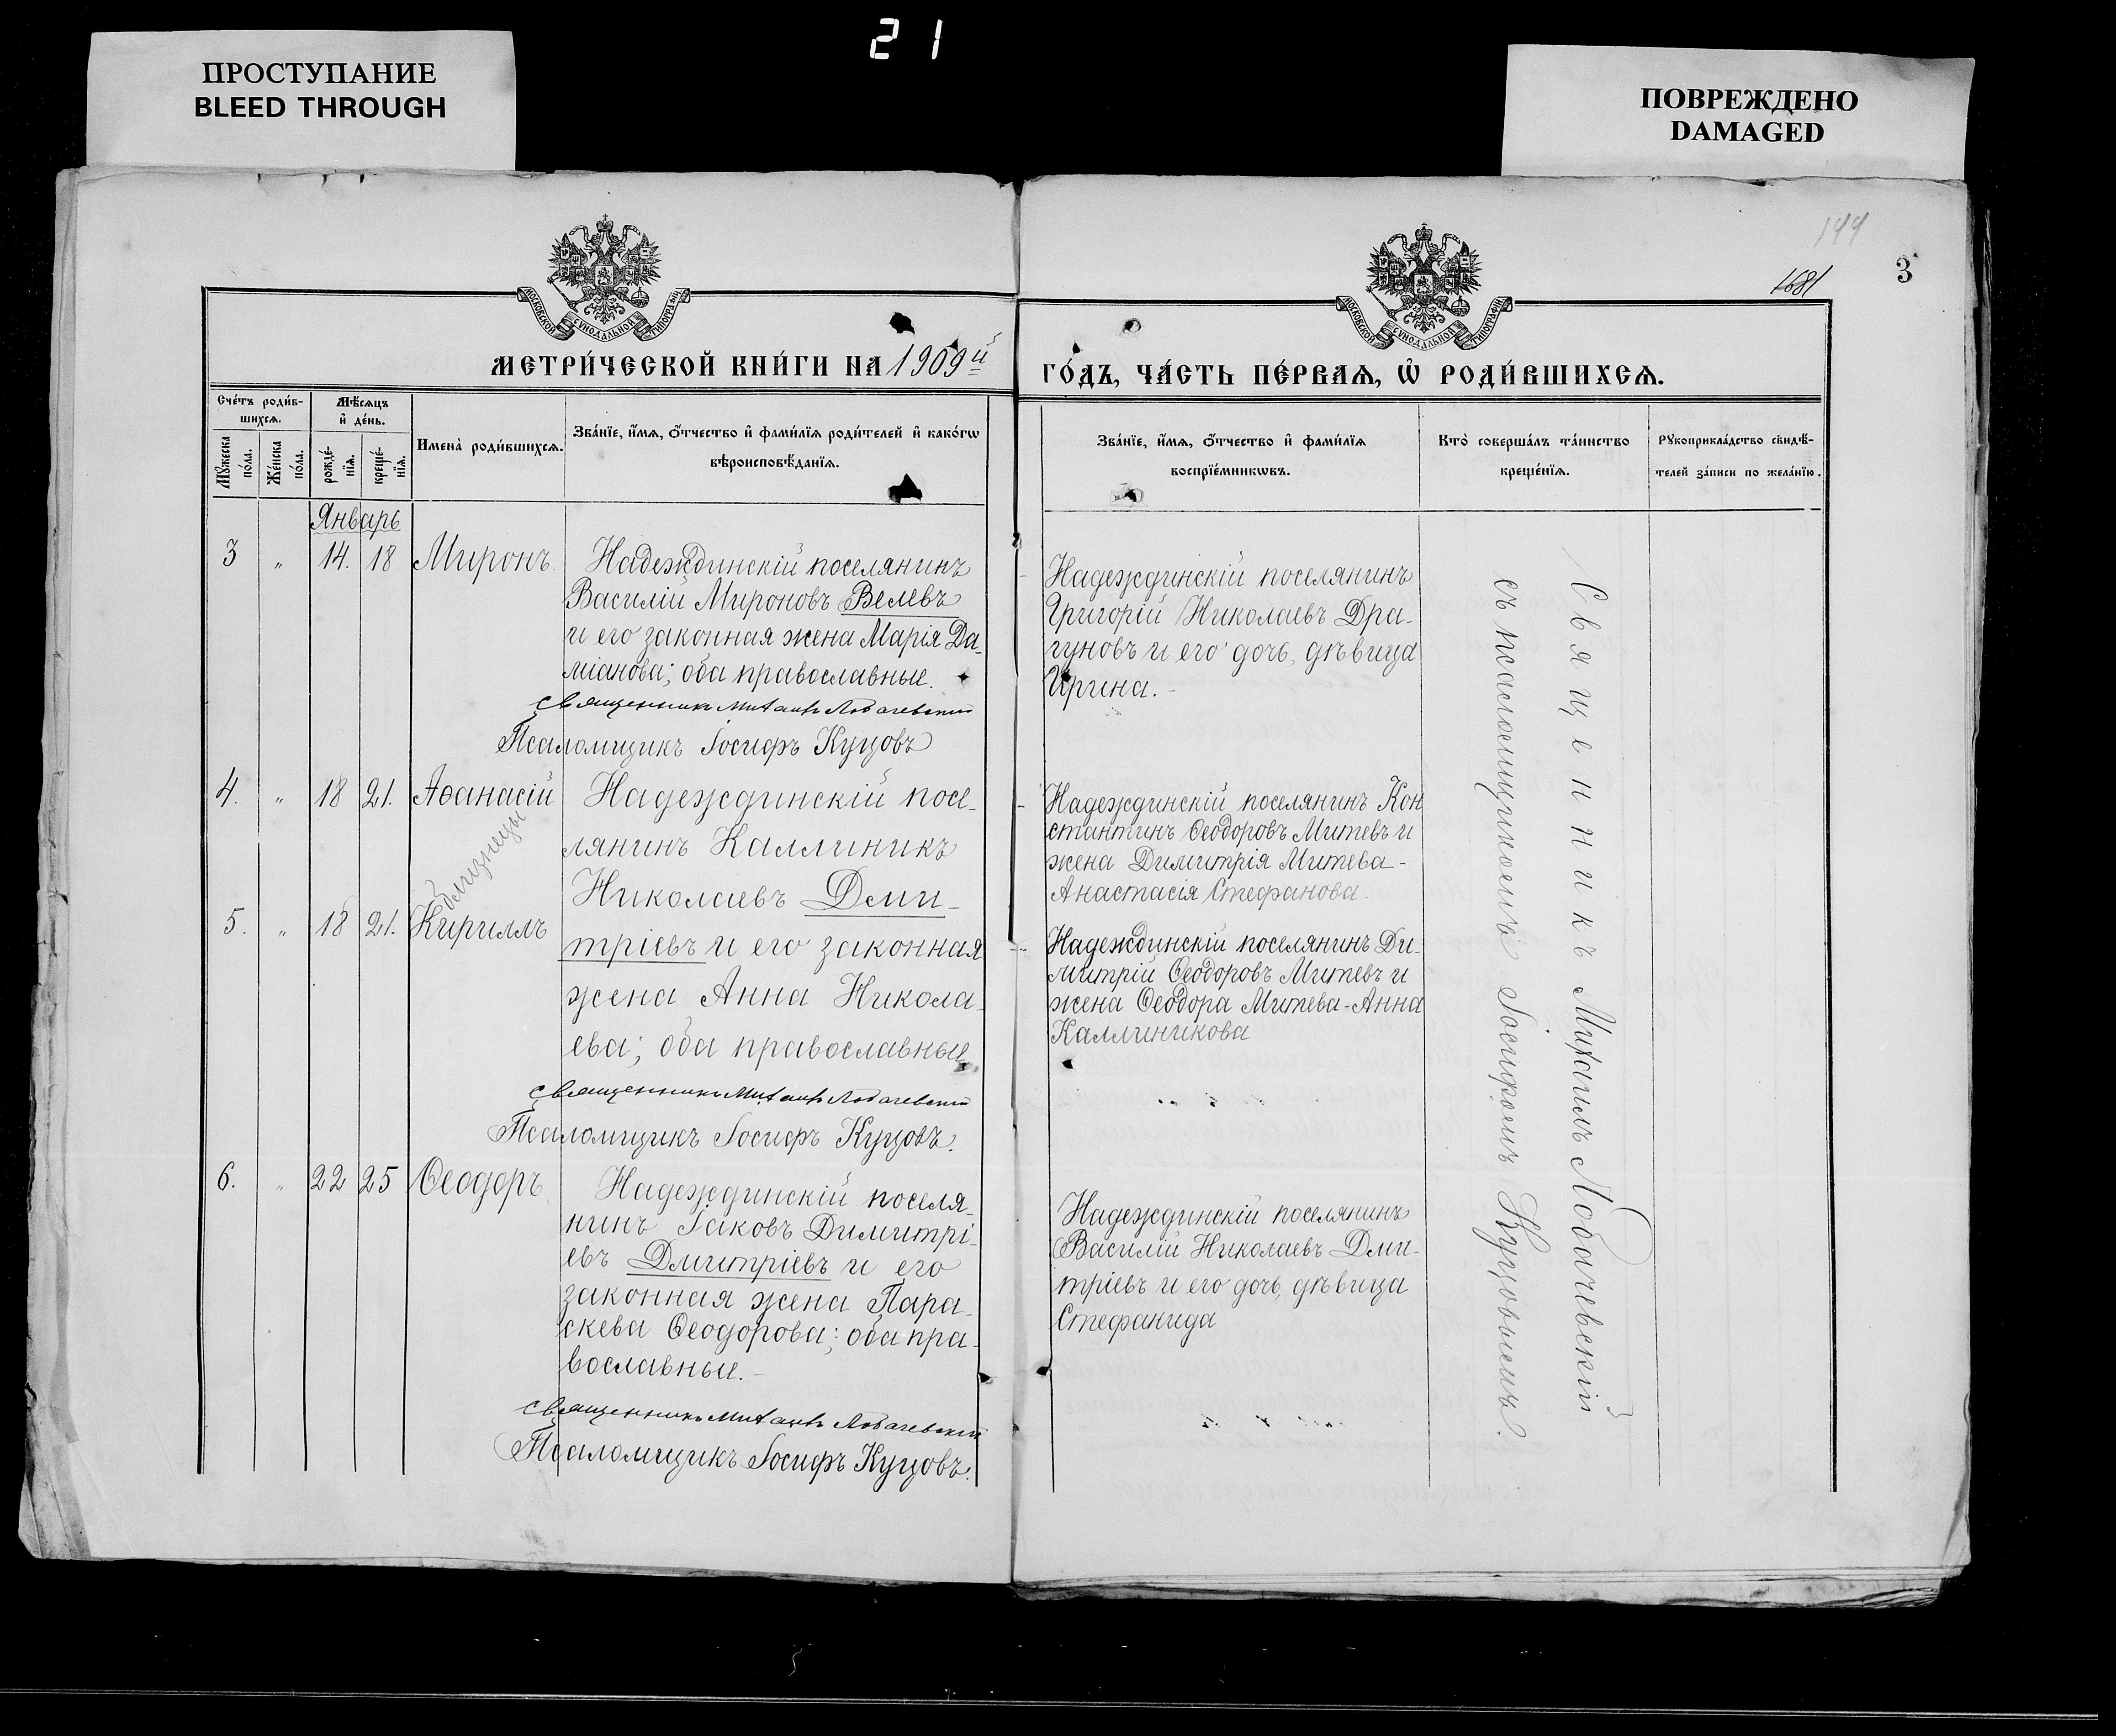 21
ПРОСТУПАНИЕ
BLEED THROUGH
ПОВРЕЖДЕНО
DAMAGED
144
1681
3
МОСКОВСКОЙ СѴНОДАЛЬНОЙ ТИПОГРАФІИ
МОСКОВСКОЙ СѴНОДАЛЬНОЙ ТИПОГРАФІИ
МЕТРИ́ЧЕСКОЙ КНИ́ГИ НА 1909й
ГО́ДЪ, ЧА́СТЬ ПЕ́РВАѦ, Ѽ РОДИ́ВШИХСѦ.
Сче́тъ роди́в-
шихсѧ.
Мꙋ́жеска
по́ла.
Же́нска
по́ла.
Мѣ́сѧцъ
и҆ де́нь.
рожде́-
нїѧ.
креще́-
нїѧ.
Имена̀ роди́вшихсѧ.
Зва́нїе, и҆́мѧ, ѻ҆́тчество и҆ фами́лїѧ роди́телей и҆ како́гѡ
вѣроисповѣ́данїѧ.
Зва́нїе, и҆́мѧ, ѻ҆́тчество и҆ фами́лїѧ
воспрїе́мникѡвъ.
Кто̀ соверша́лъ та́инство
креще́нїѧ.
Рꙋкоприкла́дство свидѣ́-
телей за́писи по жела́нїю.
Январь
3 „ 14. 18 Миронъ
Надеждинскій поселянинъ
Василій Мироновъ Велевъ
и его законная жена Марія Да-
міанова; оба православные.
Священникъ Михаилъ Лобачевскій
Псаломщикъ Іосифъ Куцовъ
Надеждинскій поселянинъ
Григорій Николаевъ Дра-
гуновъ и его дочь, дѣвица
Ирина. -
4. „ 18 21. Аѳанасій
близнецы
5. „ 18 21. Кириллъ
Надеждинскій посе-
лянинъ Каллиникъ
Николаевъ Дми-
тріевъ и его законная
жена Анна Никола-
ева; оба православные
Священникъ Михаилъ Лобачевскій
Псаломщикъ Іосифъ Куцовъ.
Надеждинскій поселянинъ Кон
стантинъ Ѳеодоровъ Митевъ и
жена Димитрія Митева-
Анастасія Стефанова.
Надеждинскій поселянинъ Ди-
митрій Ѳеодоровъ Митевъ и
жена Ѳеодора Митева-Анна
Каллиникова
6. „ 22 25 Ѳеодоръ
Надеждинскій поселя-
нинъ Іаковъ Димитрі-
евъ Дмитріевъ и его
законная жена Пара-
скева Ѳеодорова; оба пра-
вославные. -
Священникъ Михаилъ Лобачевскій
Псаломщикъ Іосифъ Куцовъ.
Надеждинскій поселянинъ
Василій Николаевъ Дми-
тріевъ и его дочь, дѣвица
Стефанида
Священникъ Михаилъ Лобачевскій
съ псаломщикомъ Іосифомъ Куцовымъ.